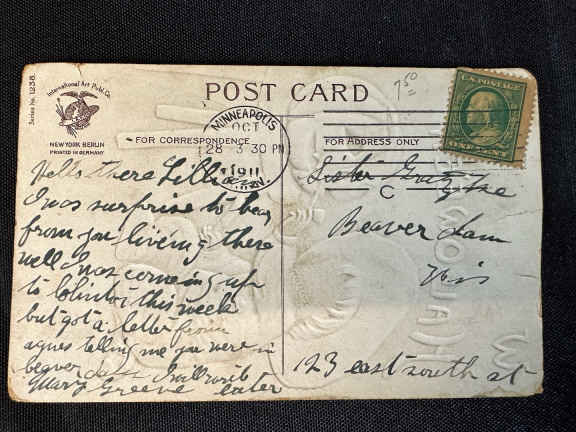 Series No. 1238.
International Art Publ. Co.
NEW YORK BERLIN
PRINTED IN GERMANY
POST CARD
7 50
FOR CORRESPONDENCE
FOR ADDRESS ONLY
MINNEAPOLIS
OCT
28 3 30 PM
1911
MINN.
C
U.S. POSTAGE
Hello there Lillie
I was surprise to hear
from you liveing there
well I was comeing up
to this week
but got a letter from
agnes telling me you were in
beaver dam I will write
Mary Greeve later
Sister
Beaver dam
Wis
123 east south st